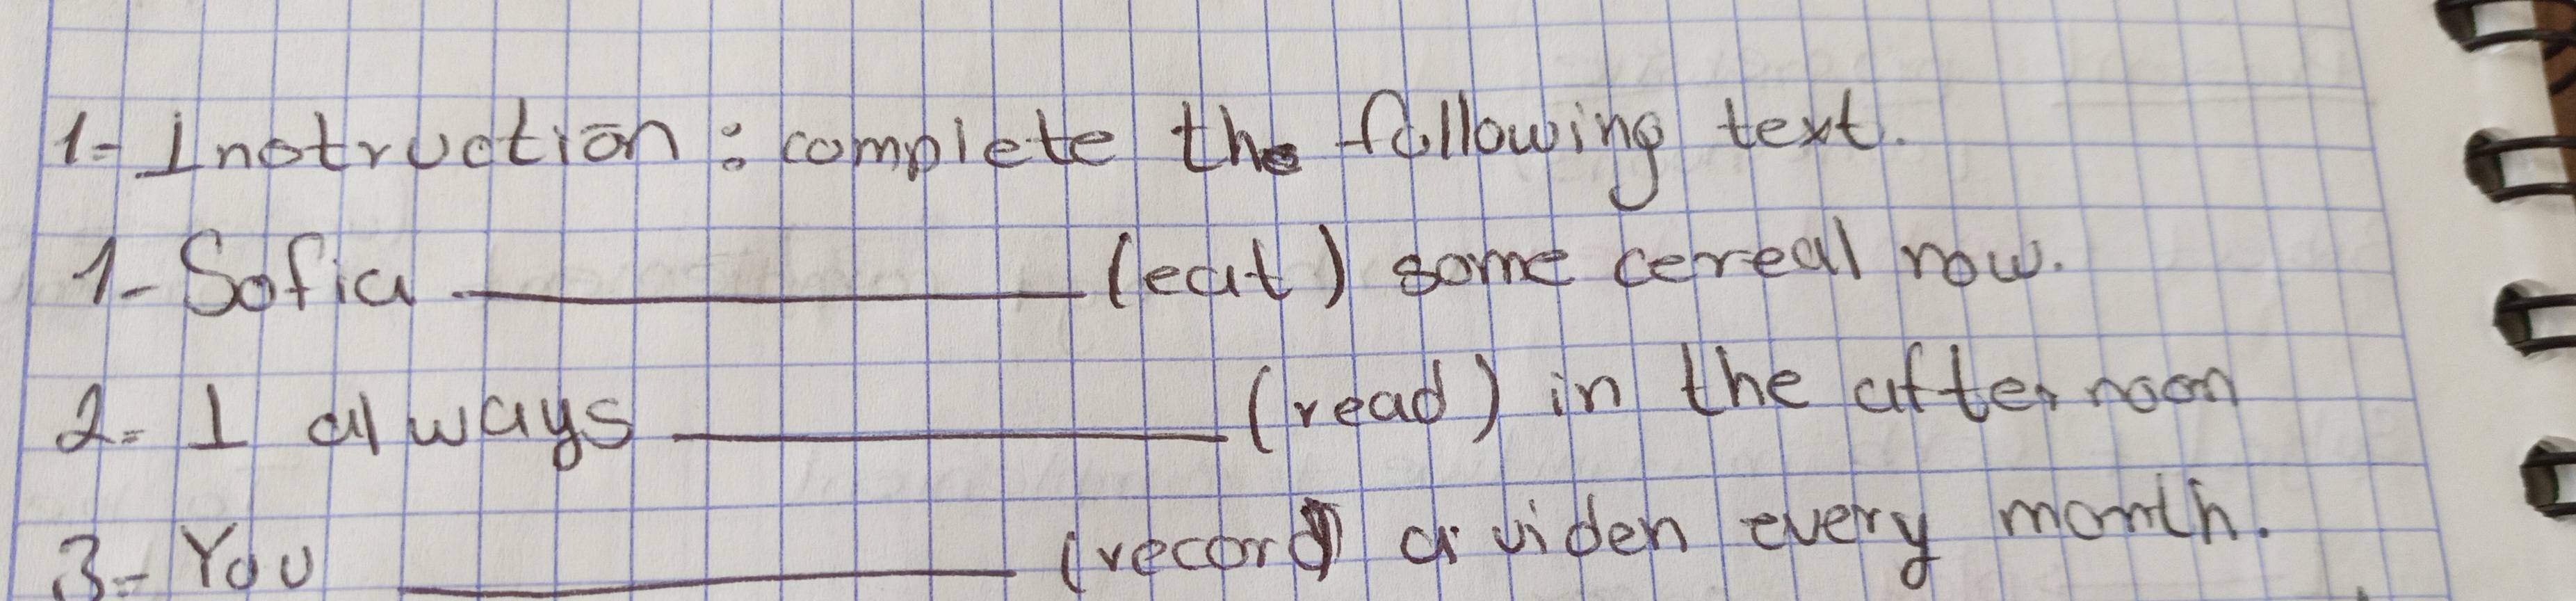 1- Instruction: complete the following text.
1- Sofia ____________ (eat) some cereal now.
2- I always ____________ (read) in the afternoon
3- You ____________ (record) a viden every month.